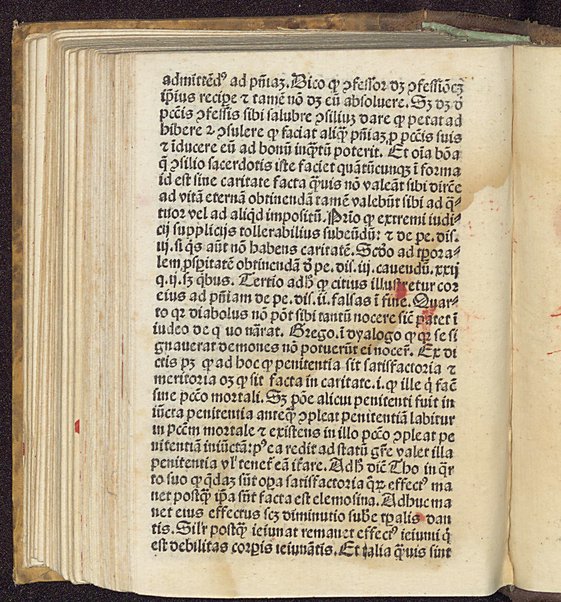 admittēdꝰ ad pn̄iaȝ. Dico ꝙ ↄfessor dȝ ↄfessiōeȝ
ip̄ius recipe ⁊ tamē nō dȝ eū absoluere. Sȝ dȝ d̄
pctīs ↄfessis sibi salubre ↄsiliuȝ dare ꝙ petat ad
hibere ⁊ ↄsulere ꝙ faciat aliq̄ pn̄iaȝ ꝓ pctīs suis
⁊ iducere eū ad bonū inq̄tū poterit. Et oīa bōa
q̄ ↄsilio sacerdotis iste faciet quantūcunqȝ ī forma
id est sine caritate facta q̄uis nō valeāt sibi dircē
ad vitā eternā obtinendā tamē valebūt sibi ad q̄-
tuor vel ad aliqd impositū. Prīo ꝙ extremi iudi-
cij supplicijs tollerabilius subeūdū: ⁊ de pe. dis.
iij. si qs aūt nō habens caritatē. Scdo ad tpora-
lem prspitatē obtinendā d̄ pe. dis. iij. cauendū. xxij
q. ij. sȝ qbus. Tertio adh̄ ꝙ citius illustretur cor
eius ad pn̄iam de pe. dis. ii. falsas ī fine. Quar-
to qꝛ diabolus nō pōt sibi tantū nocere sic̄ patet ī
iudeo de q̄ uo nārat. Grego. ī dyalogo ꝙ qꝛ se si
gnauerat demones nō potuerūt ei nocer̄. Ex di
ctis pȝ ꝙ ad hoc ꝙ penitentia sit satisfactoria ⁊
meritoria oȝ ꝙ sit facta in caritate. i. ꝙ ille q̄ fac̄
sine pctō mortali. Sȝ pōe alicui penitenti fuit in
iūcta penitentia anteq̄ ↄpleat penitentiā labitur
in pctm̄ mortale ⁊ existens in illo pctō ↄpleat pe
nitentiā iniūctā: pꝰ ea redit ad statū gr̄e valet illa
penitentia vl̓ tenet̄ eā iſare. Adh̄ dic̄ Tho in q̄r
to suo ꝙ q̄daȝ sūt oꝑa satisfactoria quoꝝ effectꝰ ma
net postq̄ ip̄a sūt facta est elemosina. Adhuc ma
net eius effectus scȝ diminutio sube tꝑalis dan
tis. Silr̄ postq̄ ieiunat remanet effectꝰ ieiunij q̄
est debilitas corꝑis ieiunātis. Et talia q̄uis sint